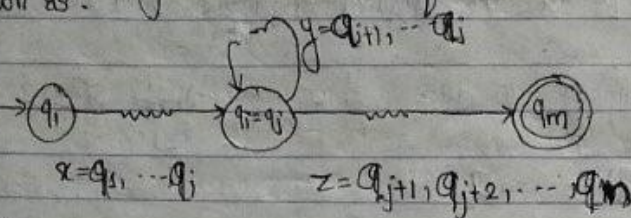 y=q_{i+1}, ... q_j
q_1 q_i=q_j q_m
x=q_1, ...q_i z=q_{j+1}, q_{j+2}, ..., q_m